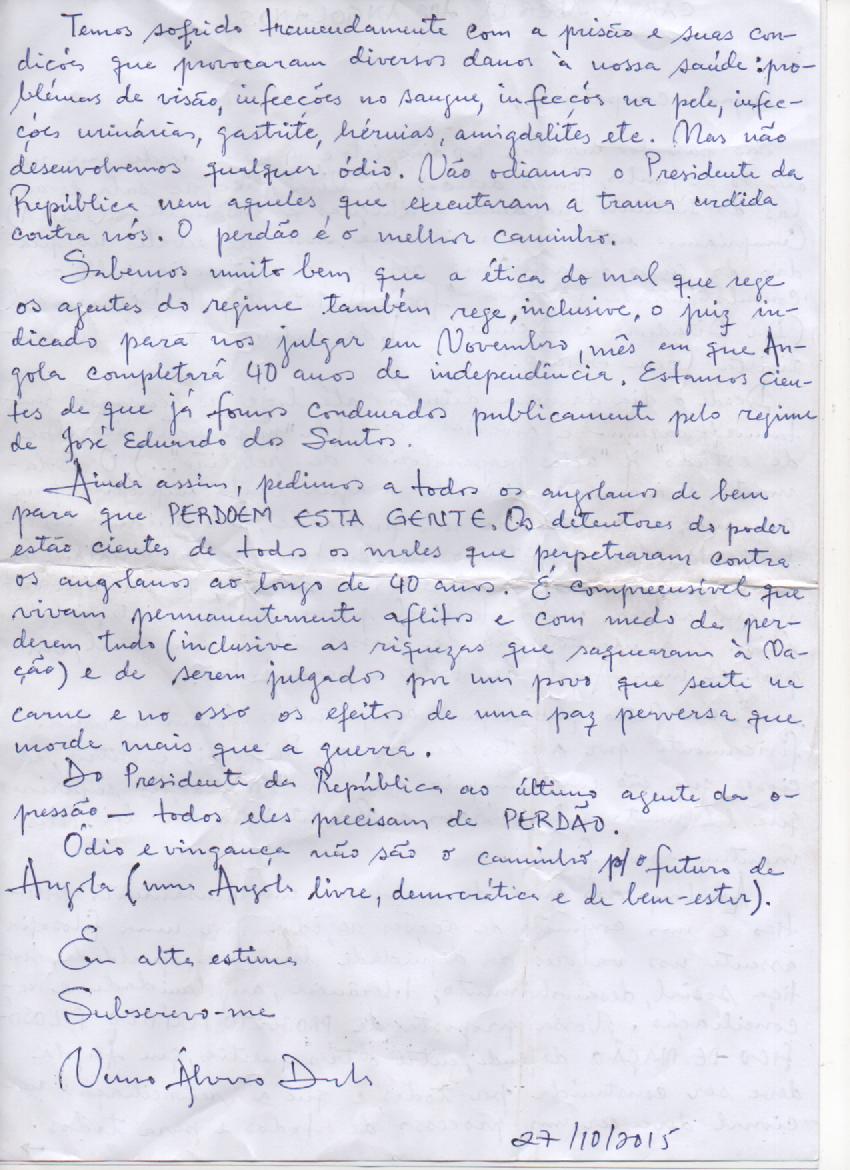 Temos sofrido tremendamente com a prisão e suas con-
dições que provocaram diversos danos à nossa saúde: pro-
blémas de visão, infecções no sangue, infecçós na pele, infec-
ções urinárias, gastrite, hérnias, amigdalites etc. Mas não
desenvolvemos qualquer ódio. Não odiamos o Presidente da
República nem aqueles que executaram a trama urdida
contra nós. O perdão é o melhor caminho.
Sabemos muito bem que a ética do mal que rege
os agentes do regime também rege, inclusive, o juiz in-
dicado para nos julgar em Novembro, mês em que An-
gola completará 40 anos de independência. Estamos cien-
tes de que já fomos condenados publicamente pelo regime
de José Eduardo dos Santos.
Ainda assim, pedimos a todos os angolanos de bem
para que PERDOEM ESTA GENTE. Os detentores do poder
estão cientes de todos os males que perpetraram contra
os angolanos ao longo de 40 anos. É compreensível que
vivam permanentemente aflitos e com medo de per-
derem tudo (inclusive as riquezas que saquearam à Na-
ção) e de serem julgados por um povo que sente na
carne e no osso os efeitos de uma paz perversa que
morde mais que a guerra.
Do Presidente da República ao último agente da o-
pressão — todos eles precisam de PERDÃO.
Ódio e vingança não são o caminho p/o futuro de
Angola (uma Angola livre, democrática e de bem-estar).
Em alta estima
Subscrevo-me
Nuno Álvaro Dala
27/10/2015